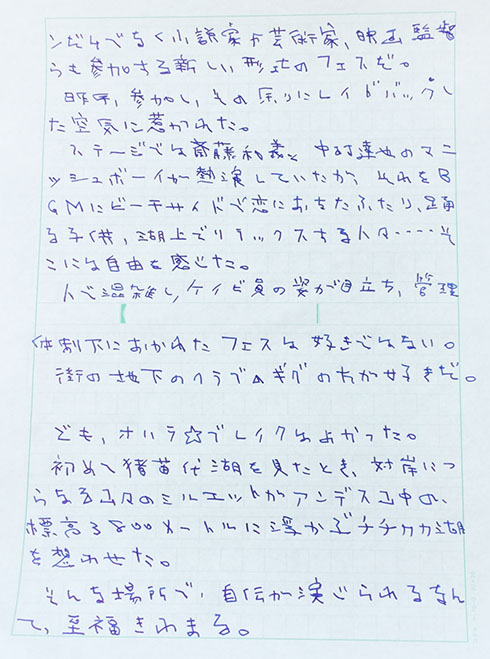 ンだけでなく小説家や芸術家、映画監督
らも参加する新しい形式のフェスだ。
昨年、参加し、その余りにレイドバックし
た空気に惹かれた。
ステージでは斎藤和義と中村達也のマニ
ッシュボーイが熱演していたが、それをB
GMにビーチサイドで恋におちたふたり、踊
る子供、湖上でリラックスする人々‥‥‥そ
こには自由を感じた。
人で混雑し、ケイビ員の姿が目立ち、管理
体制下におかれたフェスは好きではない。
街の地下のクラブ ギグの方が好きだ。
でも、オハラ☆ブレイクはよかった。
初めて猪苗代湖を見たとき、対岸につ
らなる山々のシルエットがアンデス山中の、
標高3800メートルに浮かぶチチカカ湖
を想わせた。
そんな場所で、自伝が演じられるなん
て、至福きわまる。